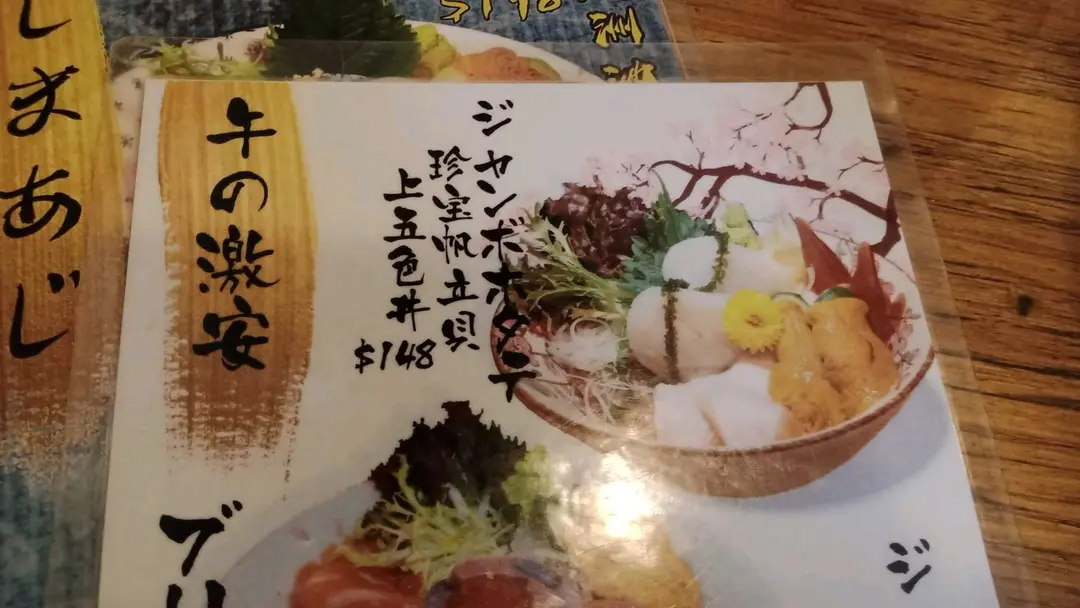 しまあじ
$148
午の激安
ジャンボホタテ
珍宝帆立貝
上五色丼
$148
ブリ
ジ